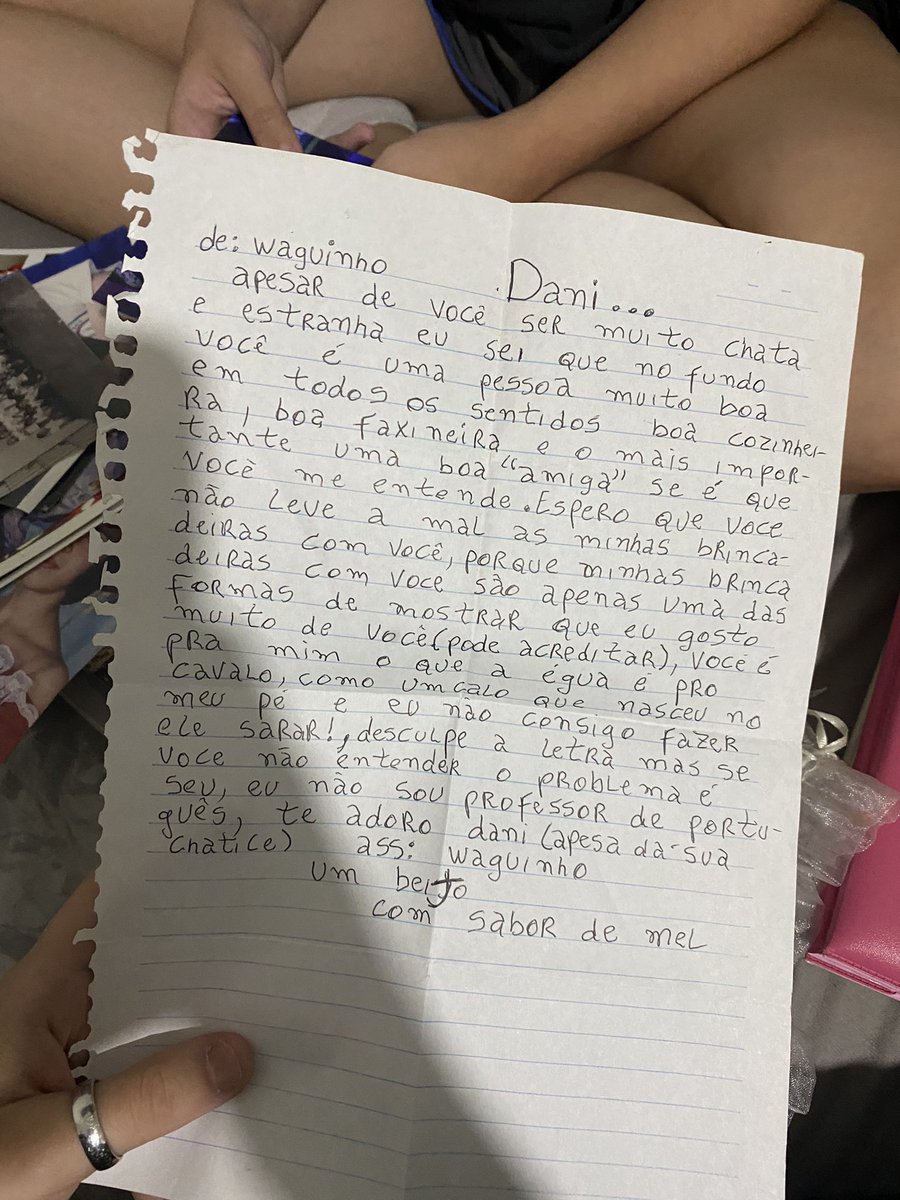 de: Waguinho
Dani...
apesar de você ser muito chata
e estranha eu sei que no fundo
você é uma pessoa muito boa
em todos os sentidos boa cozinhei-
ra, boa faxineira e o mais impor-
tante uma boa "amiga" se é que
você me entende. Espero que voce
não leve a mal as minhas brinca-
deiras com você, porque minhas brinca
deiras com voce são apenas uma das
formas de mostrar que eu gosto
muito de você (pode acreditar), você é
pra mim o que a égua é pro
cavalo, como um calo que nasceu no
meu pé e eu não consigo fazer
ele sarar!, desculpe a letra mas se
voce não entender o problema é
seu, eu não sou professor de portu-
guês, te adoro dani (apesa da sua
chatice) ass: waguinho
um beijo
com sabor de mel